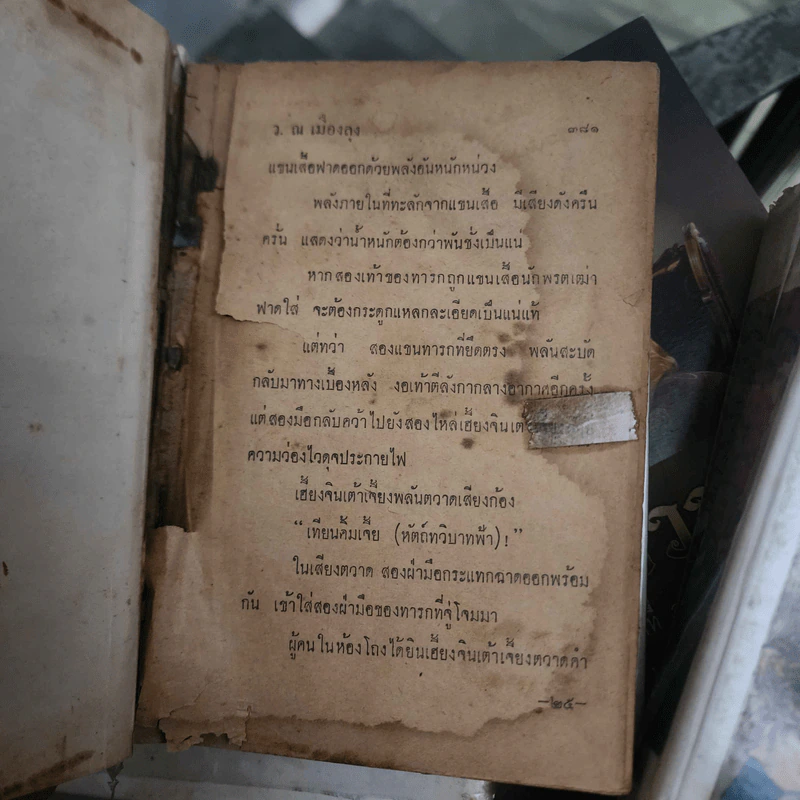 ว. ณ เมืองลุง
๓๘๑
แขนเสื้อฟาดออกด้วยพลังอันหนักหน่วง
พลังภายในที่ทะลักจากแขนเสื้อ มีเสียงดังครืน
ครั้น แสดงว่าน้ำหนักต้องกว่าพันชั่งเป็นแน่
หากสองเท้าของทารกถูกแขนเสื้อนักพรตเฒ่า
ฟาดใส่ จะต้องกระดูกแหลกละเอียดเป็นแน่แท้
แต่ทว่า สองแขนทารกที่ยืดตรง พลันสะบัด
กลับมาทางเบื้องหลัง งอเท้าตีลังกากลางอากาศอีกครั้ง
แต่สองมือกลับคว้าไปยังสองไหล่เฮี้ยงจินเต้า
ความว่องไวดุจประกายไฟ
เฮี้ยงจินเต้าเจี้ยงพลันตวาดเสียงก้อง
“เทียนคิ้มเจี้ย (หัตถ์ทวิบาทฟ้า)!”
ในเสียงตวาด สองฝ่ามือกระแทกฉาดออกพร้อม
กัน เข้าใส่สองฝ่ามือของทารกที่จู่โจมมา
ผู้คนในห้องโถงได้ยินเฮี้ยงจินเต้าเจี้ยงตวาดคำ
—๒๕—